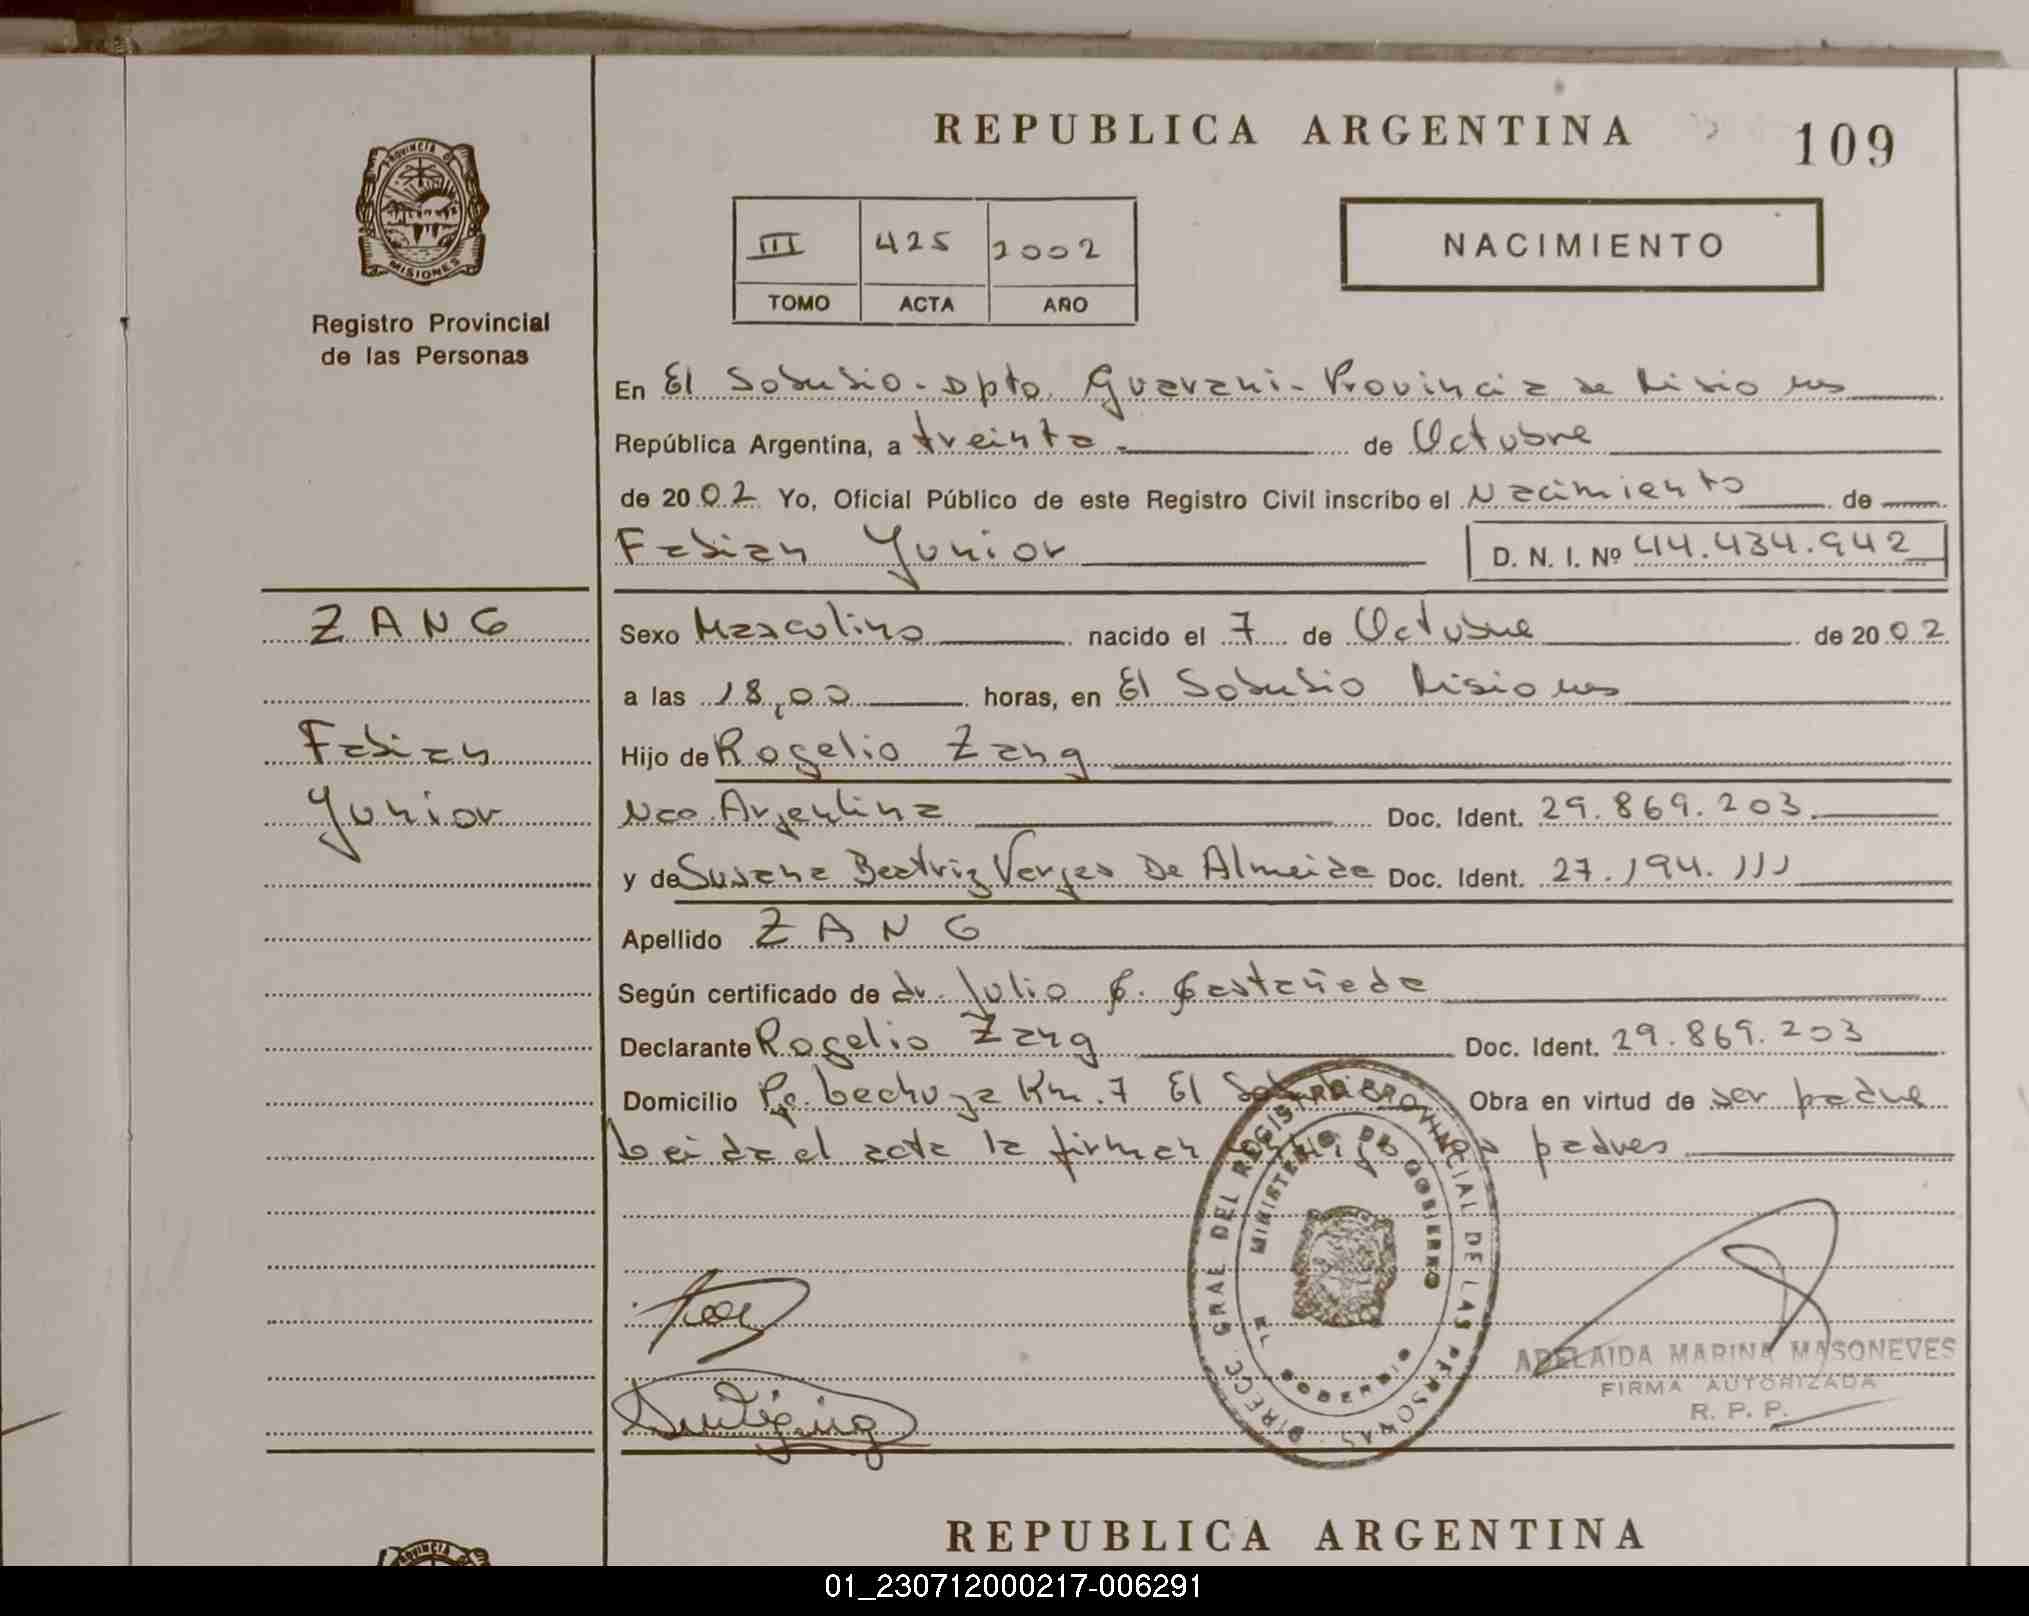 REPUBLICA ARGENTINA
109
PROVINCIA DE
MISIONES
Registro Provincial
de las Personas
III 425 2002
TOMO ACTA AÑO
NACIMIENTO
En El Soberbio - Dpto. Guarani - Provincia de Misiones
República Argentina, a treinta de Octubre
de 2002 Yo, Oficial Público de este Registro Civil inscribo el Nacimiento de
Fabian Yunior
D. N. I. Nº 44.434.942
ZANG
Fabian
Yunior
Sexo Masculino nacido el 7 de Octubre de 2002
a las 18,00 horas, en El Soberbio Misiones
Hijo de Rogelio Zang
Nac. Argentina Doc. Ident. 29.869.203
y de Susana Beatriz Vargas De Almeida Doc. Ident. 27.194.111
Apellido ZANG
Según certificado de dr. Julio C. Castañeda
Declarante Rogelio Zang Doc. Ident. 29.869.203
Domicilio Pje. Lechuza Km. 7 El Obra en virtud de ser padre
Leida el acta la firman padres
DIRECC. GRAL DEL REGISTRO PROVINCIAL DE LAS PERSONAS
MINISTERIO DE GOBIERNO
EL SOBERBIO
ADELAIDA MARINA MASONEVES
FIRMA AUTORIZADA
R. P. P.
REPUBLICA ARGENTINA
PROVINCIA DE
01_230712000217-006291